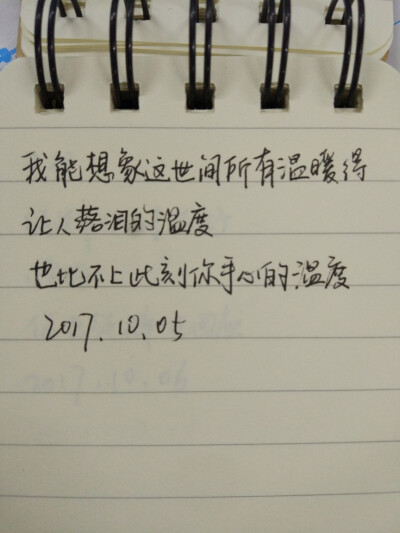 我能想象这世间所有温暖得
让人落泪的温度
也比不上此刻你手心的温度
2017.10.05
2017.10.06